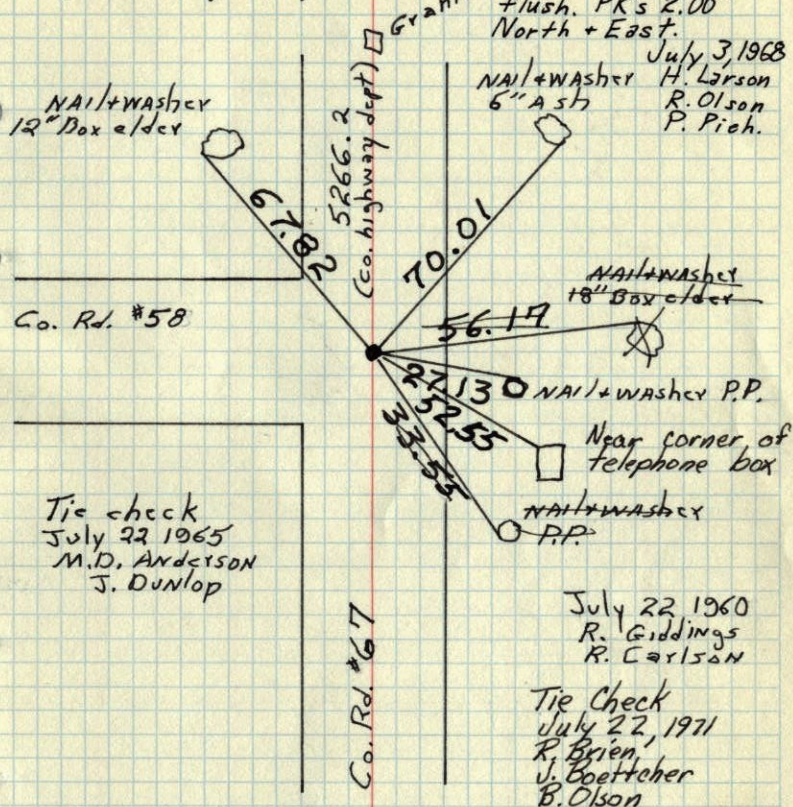 flush. PKs 2.00
North + East.
July 3, 1968
H. Larson
R. Olson
P. Pich.
NAil+WAsher
12" Box elder
NAil+WAsher
6" Ash
5266.2
(Co. highway dept)
67.82
70.01
NAil+WAsher
18" Box elder
56.17
Co. Rd. #58
27.13
NAil+WAsher P.P.
52.55
Near corner of
telephone box
33.55
NAil+WAsher
P.P.
Tie check
July 22 1965
M.D. Anderson
J. Dunlop
July 22 1960
R. Giddings
R. Carlson
Co. Rd. #67
Tie Check
July 22, 1971
R. Brien
J. Boettcher
B. Olson